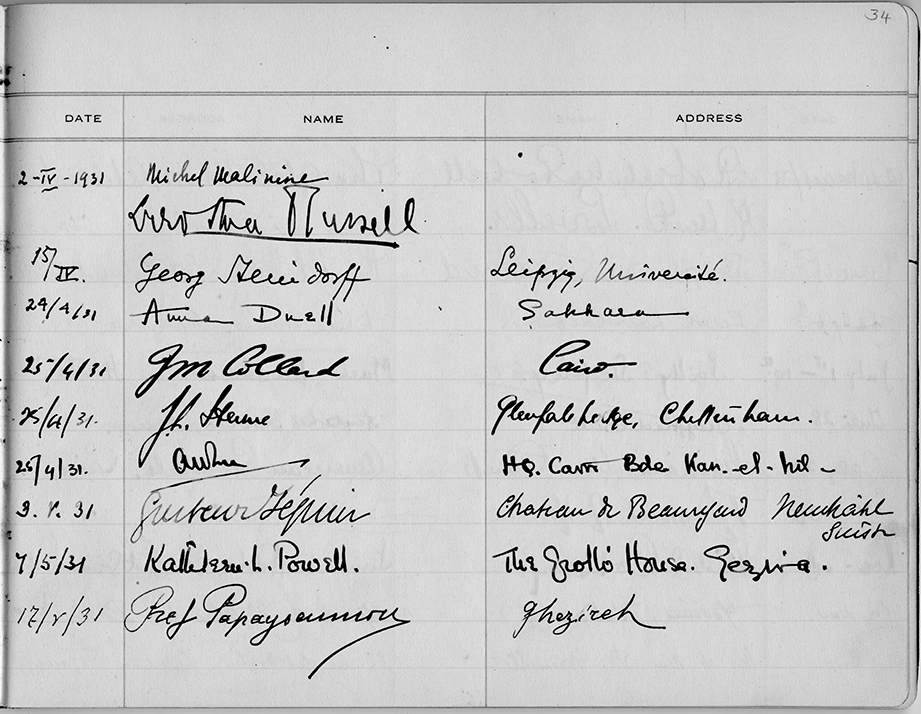 34
DATE NAME ADDRESS
2-IV-1931 Michel Malinine
Dorothea Russell
15/IV. Georg Steindorff Leipzig, Université.
24/4/31 Duell Sakkara
25/4/31 Collard Cairo.
25/4/31. Cheltenham.
25/4/31. HQ. Bde Kasr-el-Nil-
3. V. 31 Gustave Jéquier Chateau de Beauregard Neuchâtel
Suisse
7/5/31 Kathleen. L. Powell. The Grotto House. Gezira.
17/V/31 Ghezireh